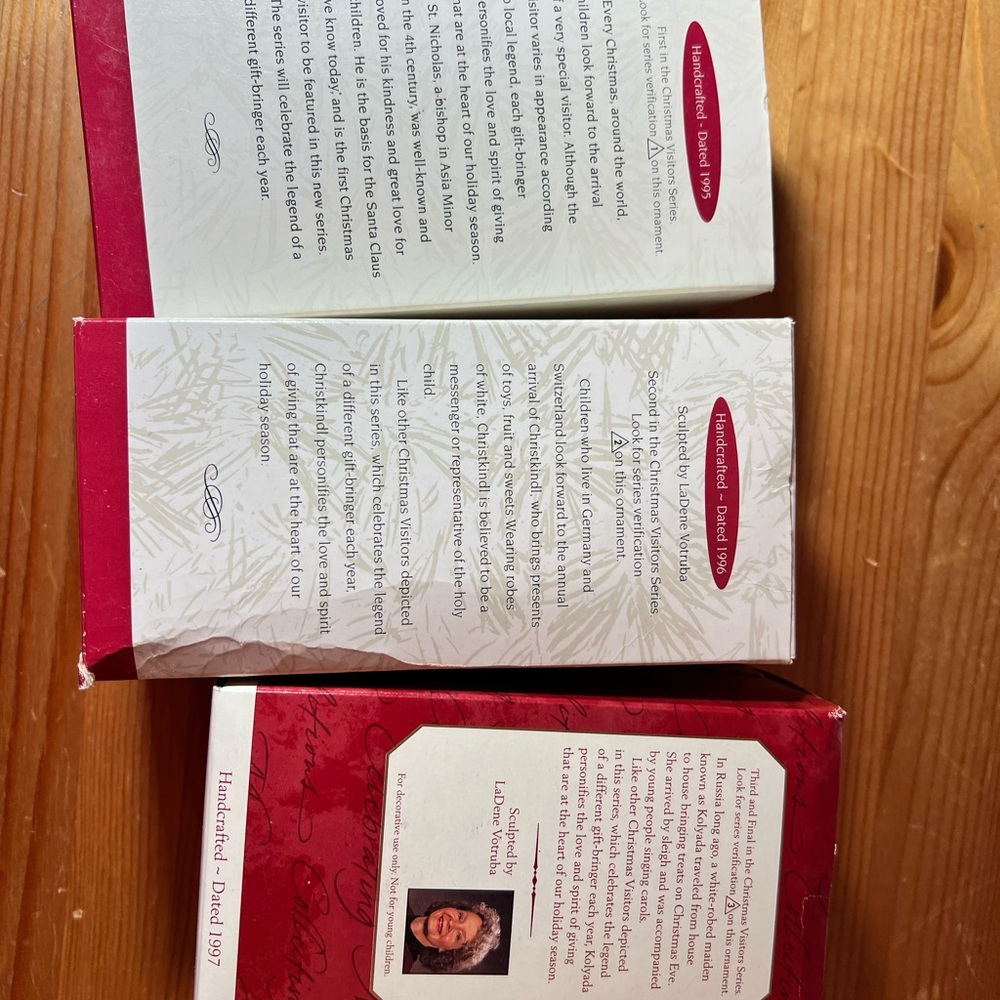 Handcrafted - Dated 1995
First in the Christmas Visitors Series.
Look for series verification 1 on this ornament.
Every Christmas, around the world,
children look forward to the arrival
of a very special visitor. Although the
visitor varies in appearance according
to local legend, each gift-bringer
personifies the love and spirit of giving
that are at the heart of our holiday season.
St. Nicholas, a bishop in Asia Minor
in the 4th century, was well-known and
loved for his kindness and great love for
children. He is the basis for the Santa Claus
we know today; and is the first Christmas
visitor to be featured in this new series.
The series will celebrate the legend of a
different gift-bringer each year.
Handcrafted ~ Dated 1996
Sculpted by LaDene Votruba
Second in the Christmas Visitors Series
Look for series verification
2 on this ornament.
Children who live in Germany and
Switzerland look forward to the annual
arrival of Christkindl, who brings presents
of toys, fruit and sweets. Wearing robes
of white, Christkindl is believed to be a
messenger or representative of the holy
child.
Like other Christmas Visitors depicted
in this series, which celebrates the legend
of a different gift-bringer each year,
Christkindl personifies the love and spirit
of giving that are at the heart of our
holiday season.
Third and Final in the Christmas Visitors Series
Look for series verification 3 on this ornament.
In Russia long ago, a white-robed maiden
known as Kolyada traveled from house
to house bringing treats on Christmas Eve.
She arrived by sleigh and was accompanied
by young people singing carols.
Like other Christmas Visitors depicted
in this series, which celebrates the legend
of a different gift-bringer each year, Kolyada
personifies the love and spirit of giving
that are at the heart of our holiday season.
Sculpted by
LaDene Votruba
For decorative use only. Not for young children.
Handcrafted ~ Dated 1997